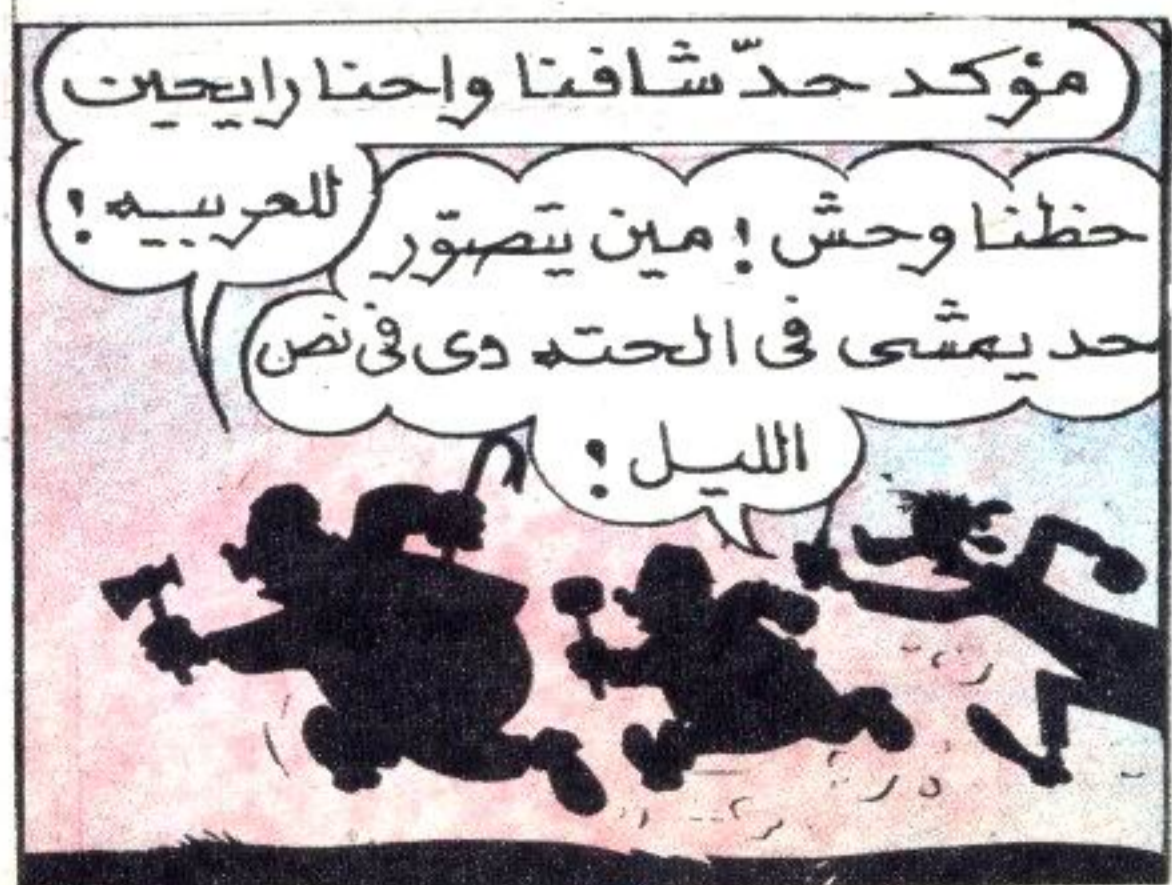 مؤكد حدّ شافنا واحنا رايحين
للعربيه !
حظنا وحش ! مين يتصوّر
حد يمشى فى الحته دى فى نص
الليل !